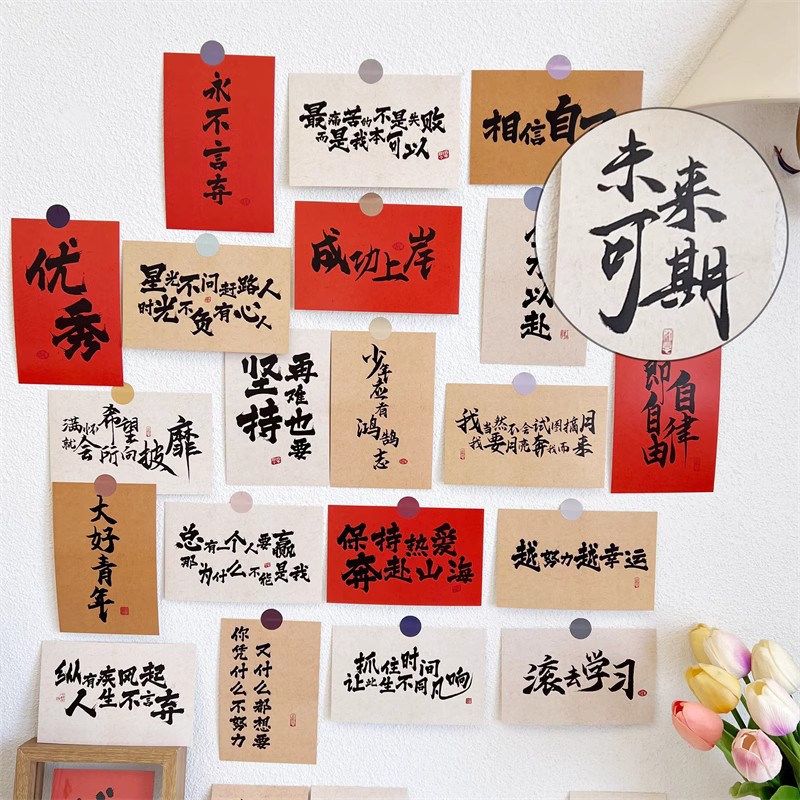 永不言弃
最痛苦的不是失败
而是我本可以
相信自
未来
可期
优秀
星光不问赶路人
时光不负有心人
成功上岸
力以赴
再难也要
坚持
少年应有鸿鹄志
我当然不会试图摘月
我要月亮奔我而来
自律
即自由
满怀希望
就会所向披靡
大好青年
总有一个人要赢
那为什么不能是我
保持热爱
奔赴山海
越努力越幸运
纵有疾风起
人生不言弃
你凭什么不努力
又什么都想要
抓住时间
让此生不同凡响
滚去学习